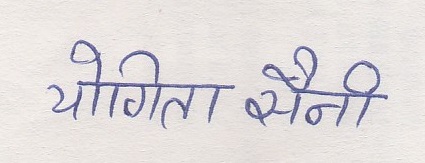 योगिता सैनी